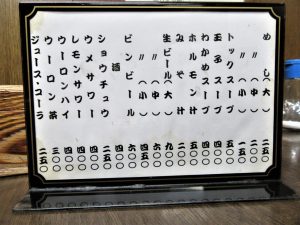 めし(大) 二五〇
〃(中) 二〇〇
〃(小) 一五〇
トックスープ 五〇〇
玉子スープ 四〇〇
わかめスープ 四〇〇
ホルモン汁 五五〇
みそ汁 二〇〇
生ビール(大) 九〇〇
〃(中) 六〇〇
〃(小) 四五〇
ビンビール 六〇〇
酒 四〇〇
ショウチュウ 二五〇
ウメサワー 四〇〇
レモンサワー 四〇〇
ウーロンハイ 四〇〇
ウーロン茶 三〇〇
ジュース・コーラ 二五〇